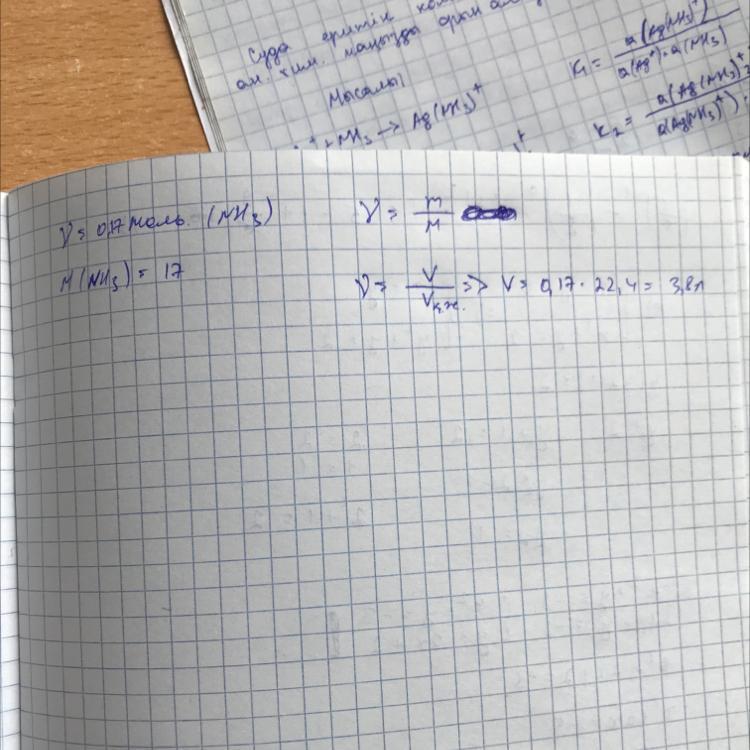 Суда еритін
ан. хим. маңызды орын
Мысалы
+ NH₃ → Ag(NH₃)⁺
K₁ = a(Ag(NH₃)⁺) / a(Ag⁺)·a(NH₃)
K₂ = a(Ag(NH₃)⁺ / a(Ag(NH₃)⁺)·
ν = 0,17 моль (NH₃)
ν = m/M
M(NH₃) = 17
ν = V/Vқ.ж. => V = 0,17 · 22,4 = 3,8л